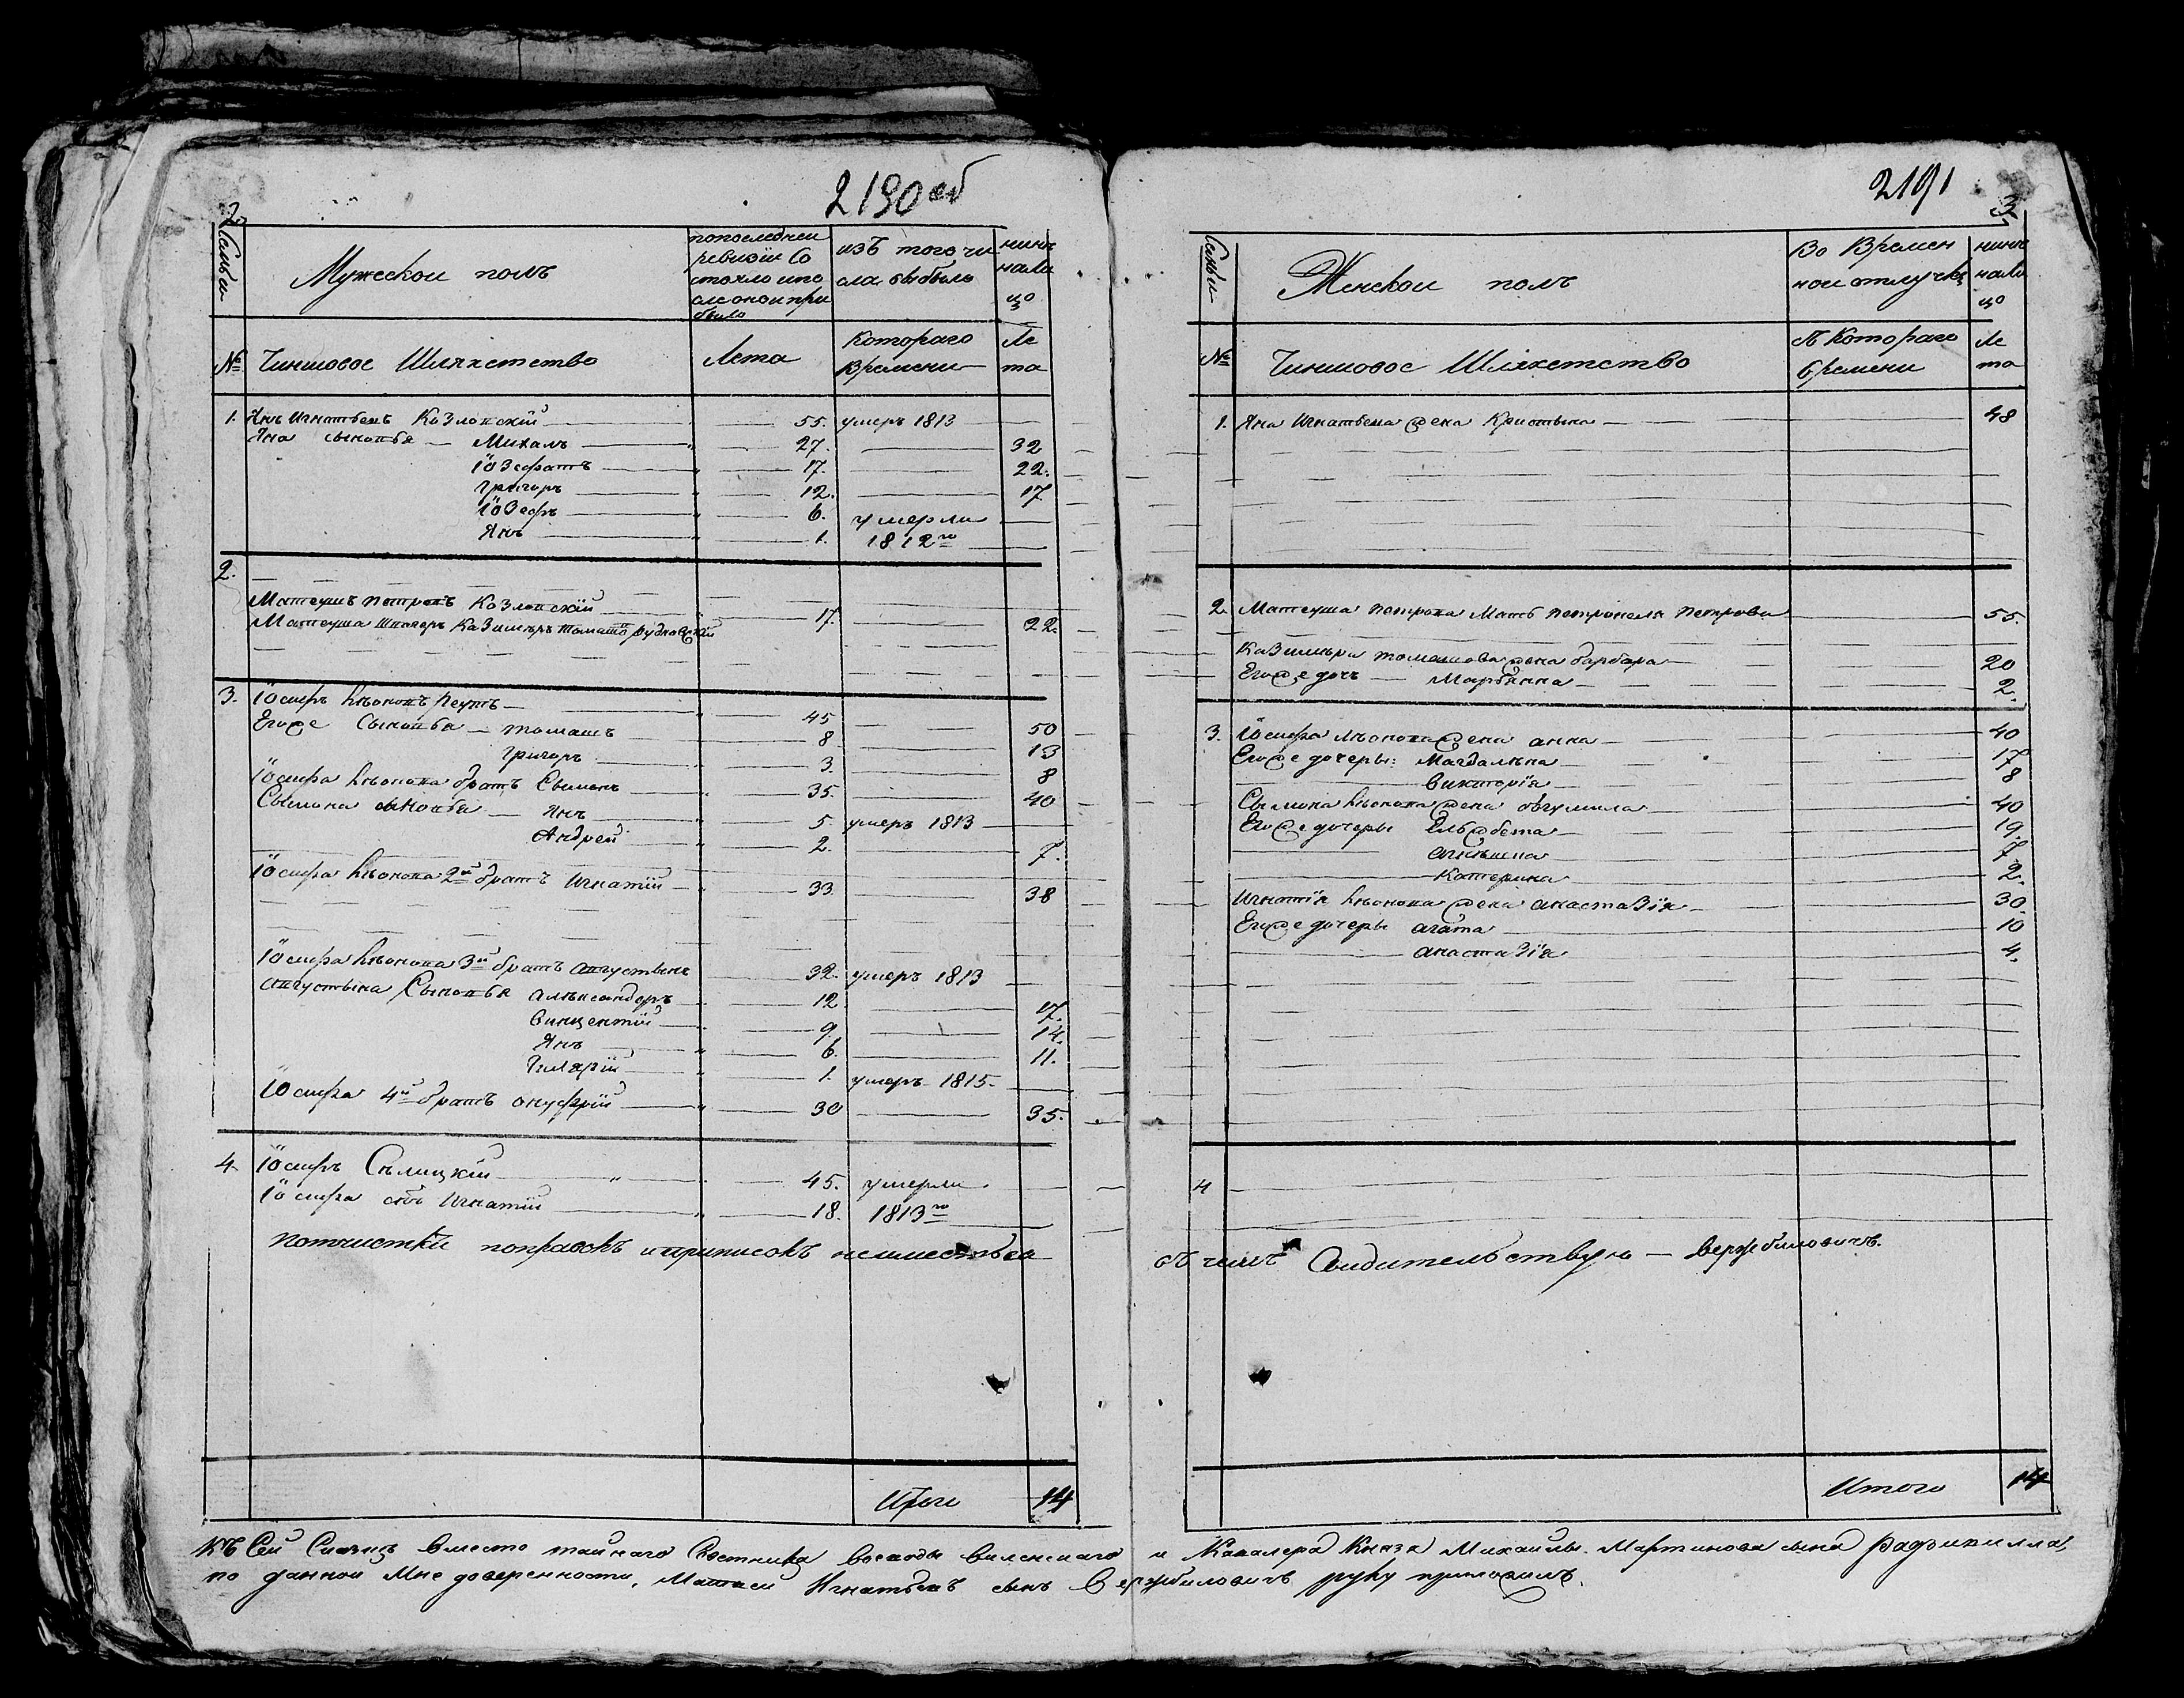 2190 об
2
Семьи
Мужескои полъ
попоследнеи
ревизiи со
стояло и по
оле онои при
было
изъ того чи
сла выбыло
нинѣ
нали
цо
№ Чиншовое Шляхетство
Лета
Котораго
Времени
Ле
та
1. Янъ Игнатьевъ Козловскiй 55. умеръ 1813
Яна сыновья Михалъ 27. 32
Iозефатъ 17. 22.
Григоръ 12. 17
Iозефъ 6. умерли
Янъ 1. 1812го
2.
Матеушъ Петровъ Козловскiй 17. 22.
Матеуша Казимѣръ
3. Iосифъ 45 50
Егоже Сыновья Томашъ 8 13
Григоръ 3. 8
Iосифа братъ Сымонъ 35. 40
Сымона сыновья Янъ 5. умеръ 1813
Андрей 2. 7.
Iосифа 2й братъ Игнатiй 33. 38
Iосифа 3й братъ Августынъ 32. умеръ 1813
Августына Сыновья Алѣксандеръ 12 17.
Винцентiй 9 14.
Янъ 6. 11.
Гилярiй 1. умеръ 1815.
Iосифа 4й братъ Онуфрiй 30 35.
4. Iосифъ Сѣлицкiй 45. умерли
Iосифа сѣъ Игнатiй 18. 1813го
Потчистки поправокъ и приписокъ неимеется
Итого 14
2191
3
Семьи
Женскои полъ
Во Времен
нои отлучкѣ
нинѣ
нали
цо
№ Чиншовое Шляхетство
съ Котораго
времени
Ле
та
1. Яна Игнатьева жена Крыстына 48
2. Матеуша Петрова Мать Петронеля Петрова 55.
Казимѣра Томашова жена барбара 20
Егоже дочь Марьянна 2.
3. Iосифа жена анна 40
Егоже дочеры: Магдальна 17
Викторiя 8
Сымона жена 40
Егоже дочеры Ельжбета 19.
7.
Катерина 2.
Игнатiя жена анастазiя 30.
Егоже дочеры агата 10
анастазiя 4.
4
объ чемъ Свидительствую — Вержбиловичъ.
Итого 14
Къ Сей Сказцѣ вместо тайнаго Советника воеводы виленского и Кавалера Князя Михаилы Мартинова сына Радзивилла,
по данной Мне доверенности, Матвей Игнатьевъ сынъ Вержбиловичъ руку приложилъ.